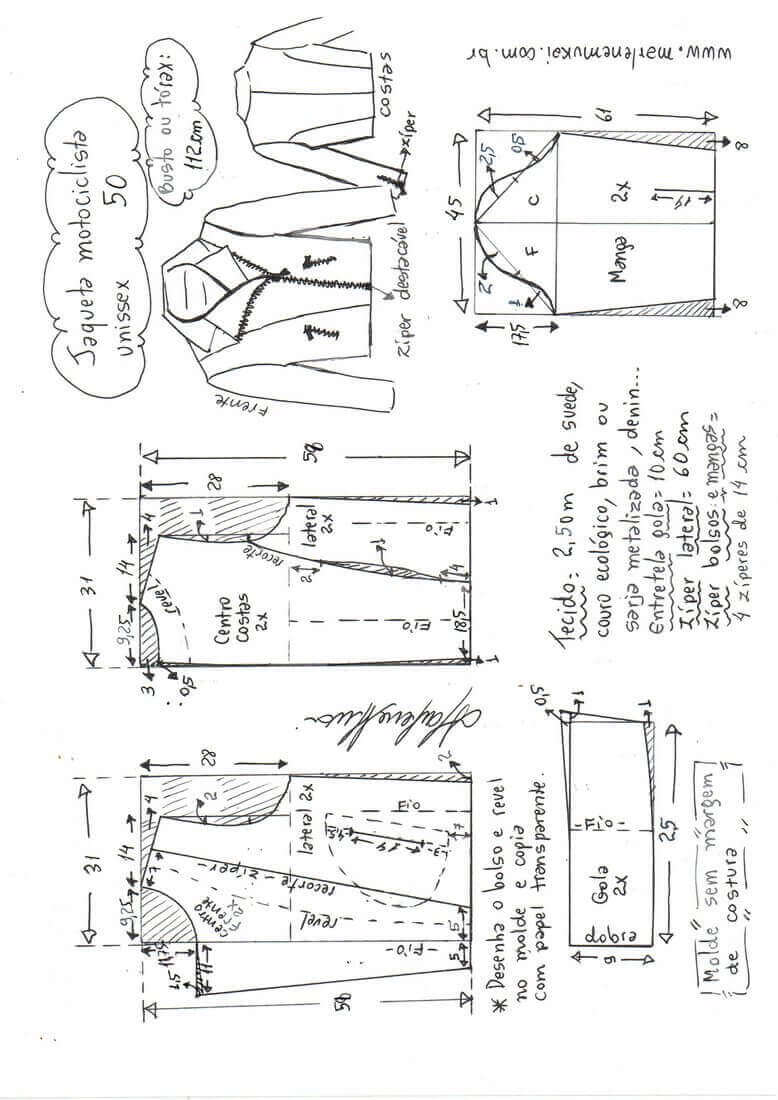 Jaqueta motociclista
unissex 50
Busto ou tórax:
112 cm
Frente
zíper destacável
costas
zíper
www.marlenemukai.com.br
31
9,25
14
4
28
2
7
11,5
1,5
11
58
centro
frente
2x
revel
recorte - zíper -
lateral 2x
Fio
Fio
14
1,5
3
7
5
5
2
31
9,25
14
4
3
0,5
28
1
58
revel
Centro
costas
2x
recorte
lateral
2x
2
1
4
Fio
Fio
18,5
1
1
45
17,5
61
2
1
2,5
0,8
F
C
Manga
2x
14
8
8
* Desenha o bolso e revel
no molde e copia
com papel transparente.
Tecido = 2,50m de suede,
couro ecológico, brim ou
sarja metalizada, denin...
Entretela gola = 10 cm
Zíper lateral = 60 cm
Zíper bolsos e mangas =
4 zíperes de 14 cm
dobra
Gola
2x
Fio
9
25
0,5
1
1
Molde sem margem
de costura